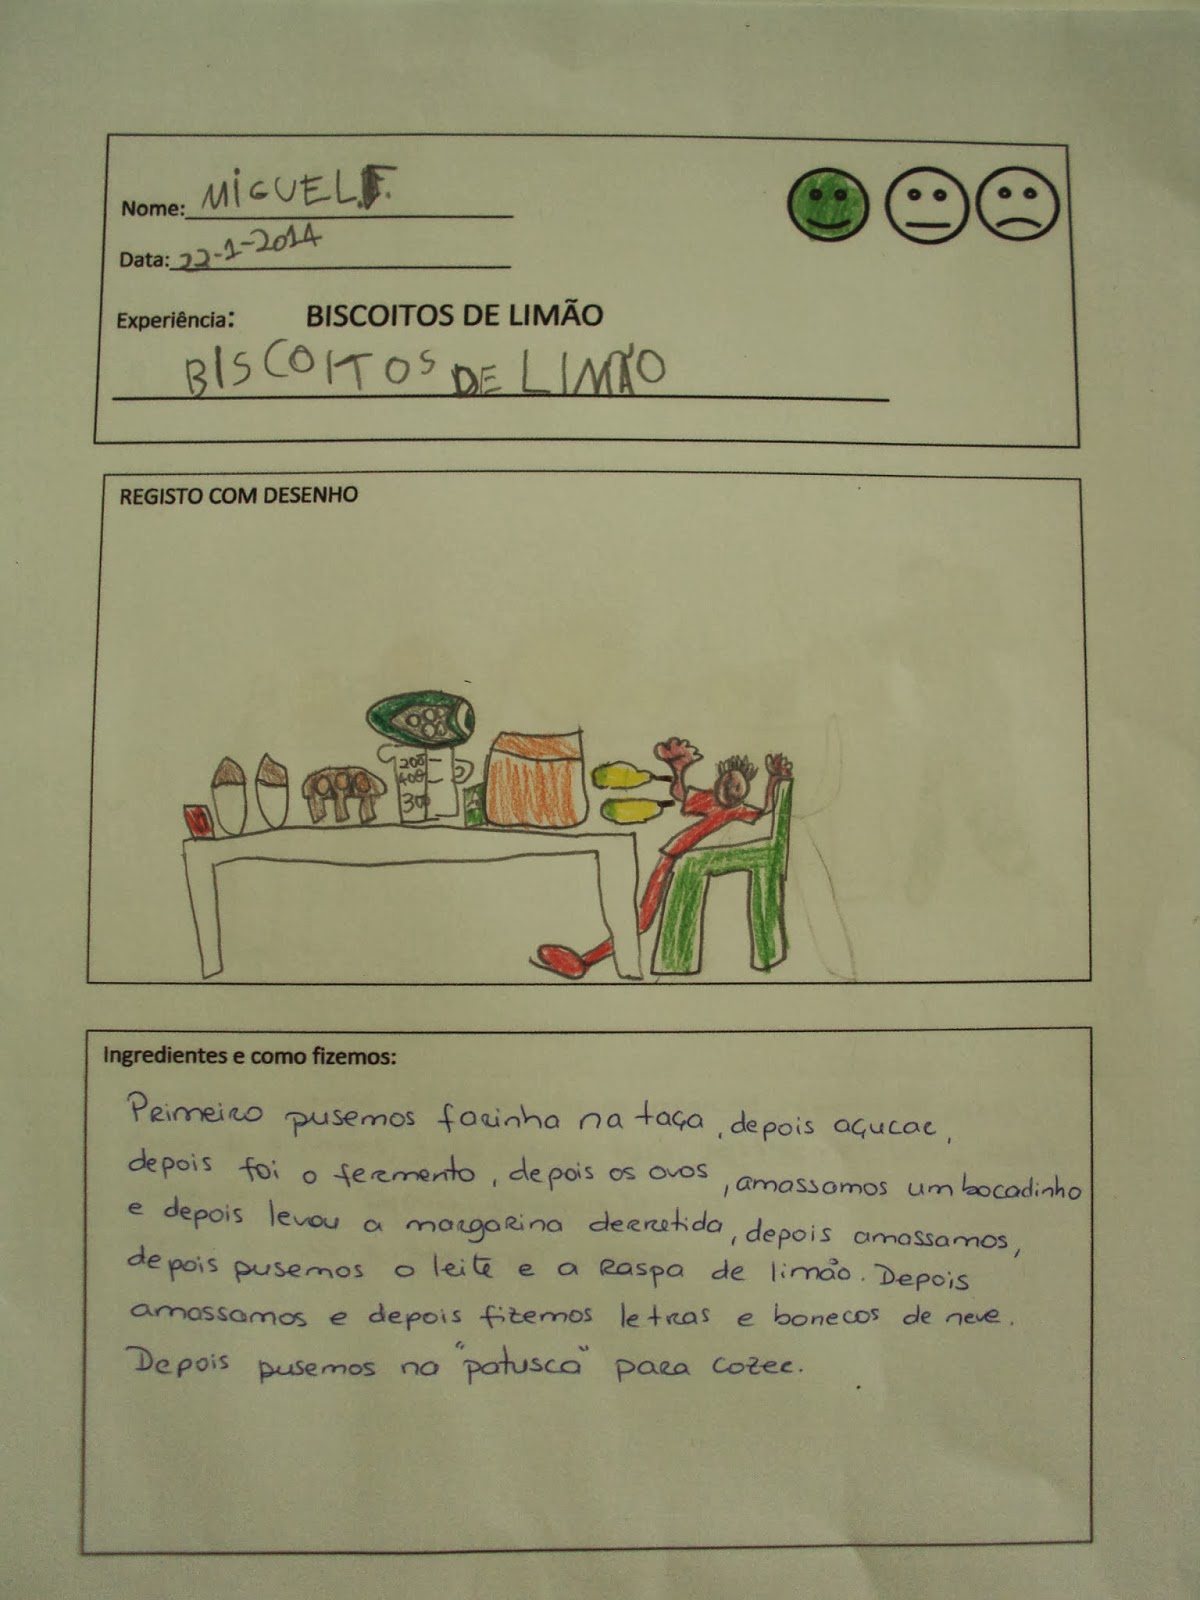 Nome: MIGUEL.F.
Data: 22-1-2014
Experiência: BISCOITOS DE LIMÃO
BISCOITOS DE LIMÃO
REGISTO COM DESENHO
200
400
300
Ingredientes e como fizemos:
Primeiro pusemos farinha na taça, depois açucar,
depois foi o fermento, depois os ovos, amassamos um bocadinho
e depois levou a margarina derretida, depois amassamos,
depois pusemos o leite e a raspa de limão. Depois
amassamos e depois fizemos letras e bonecos de neve.
Depois pusemos na "patusca" para cozer.